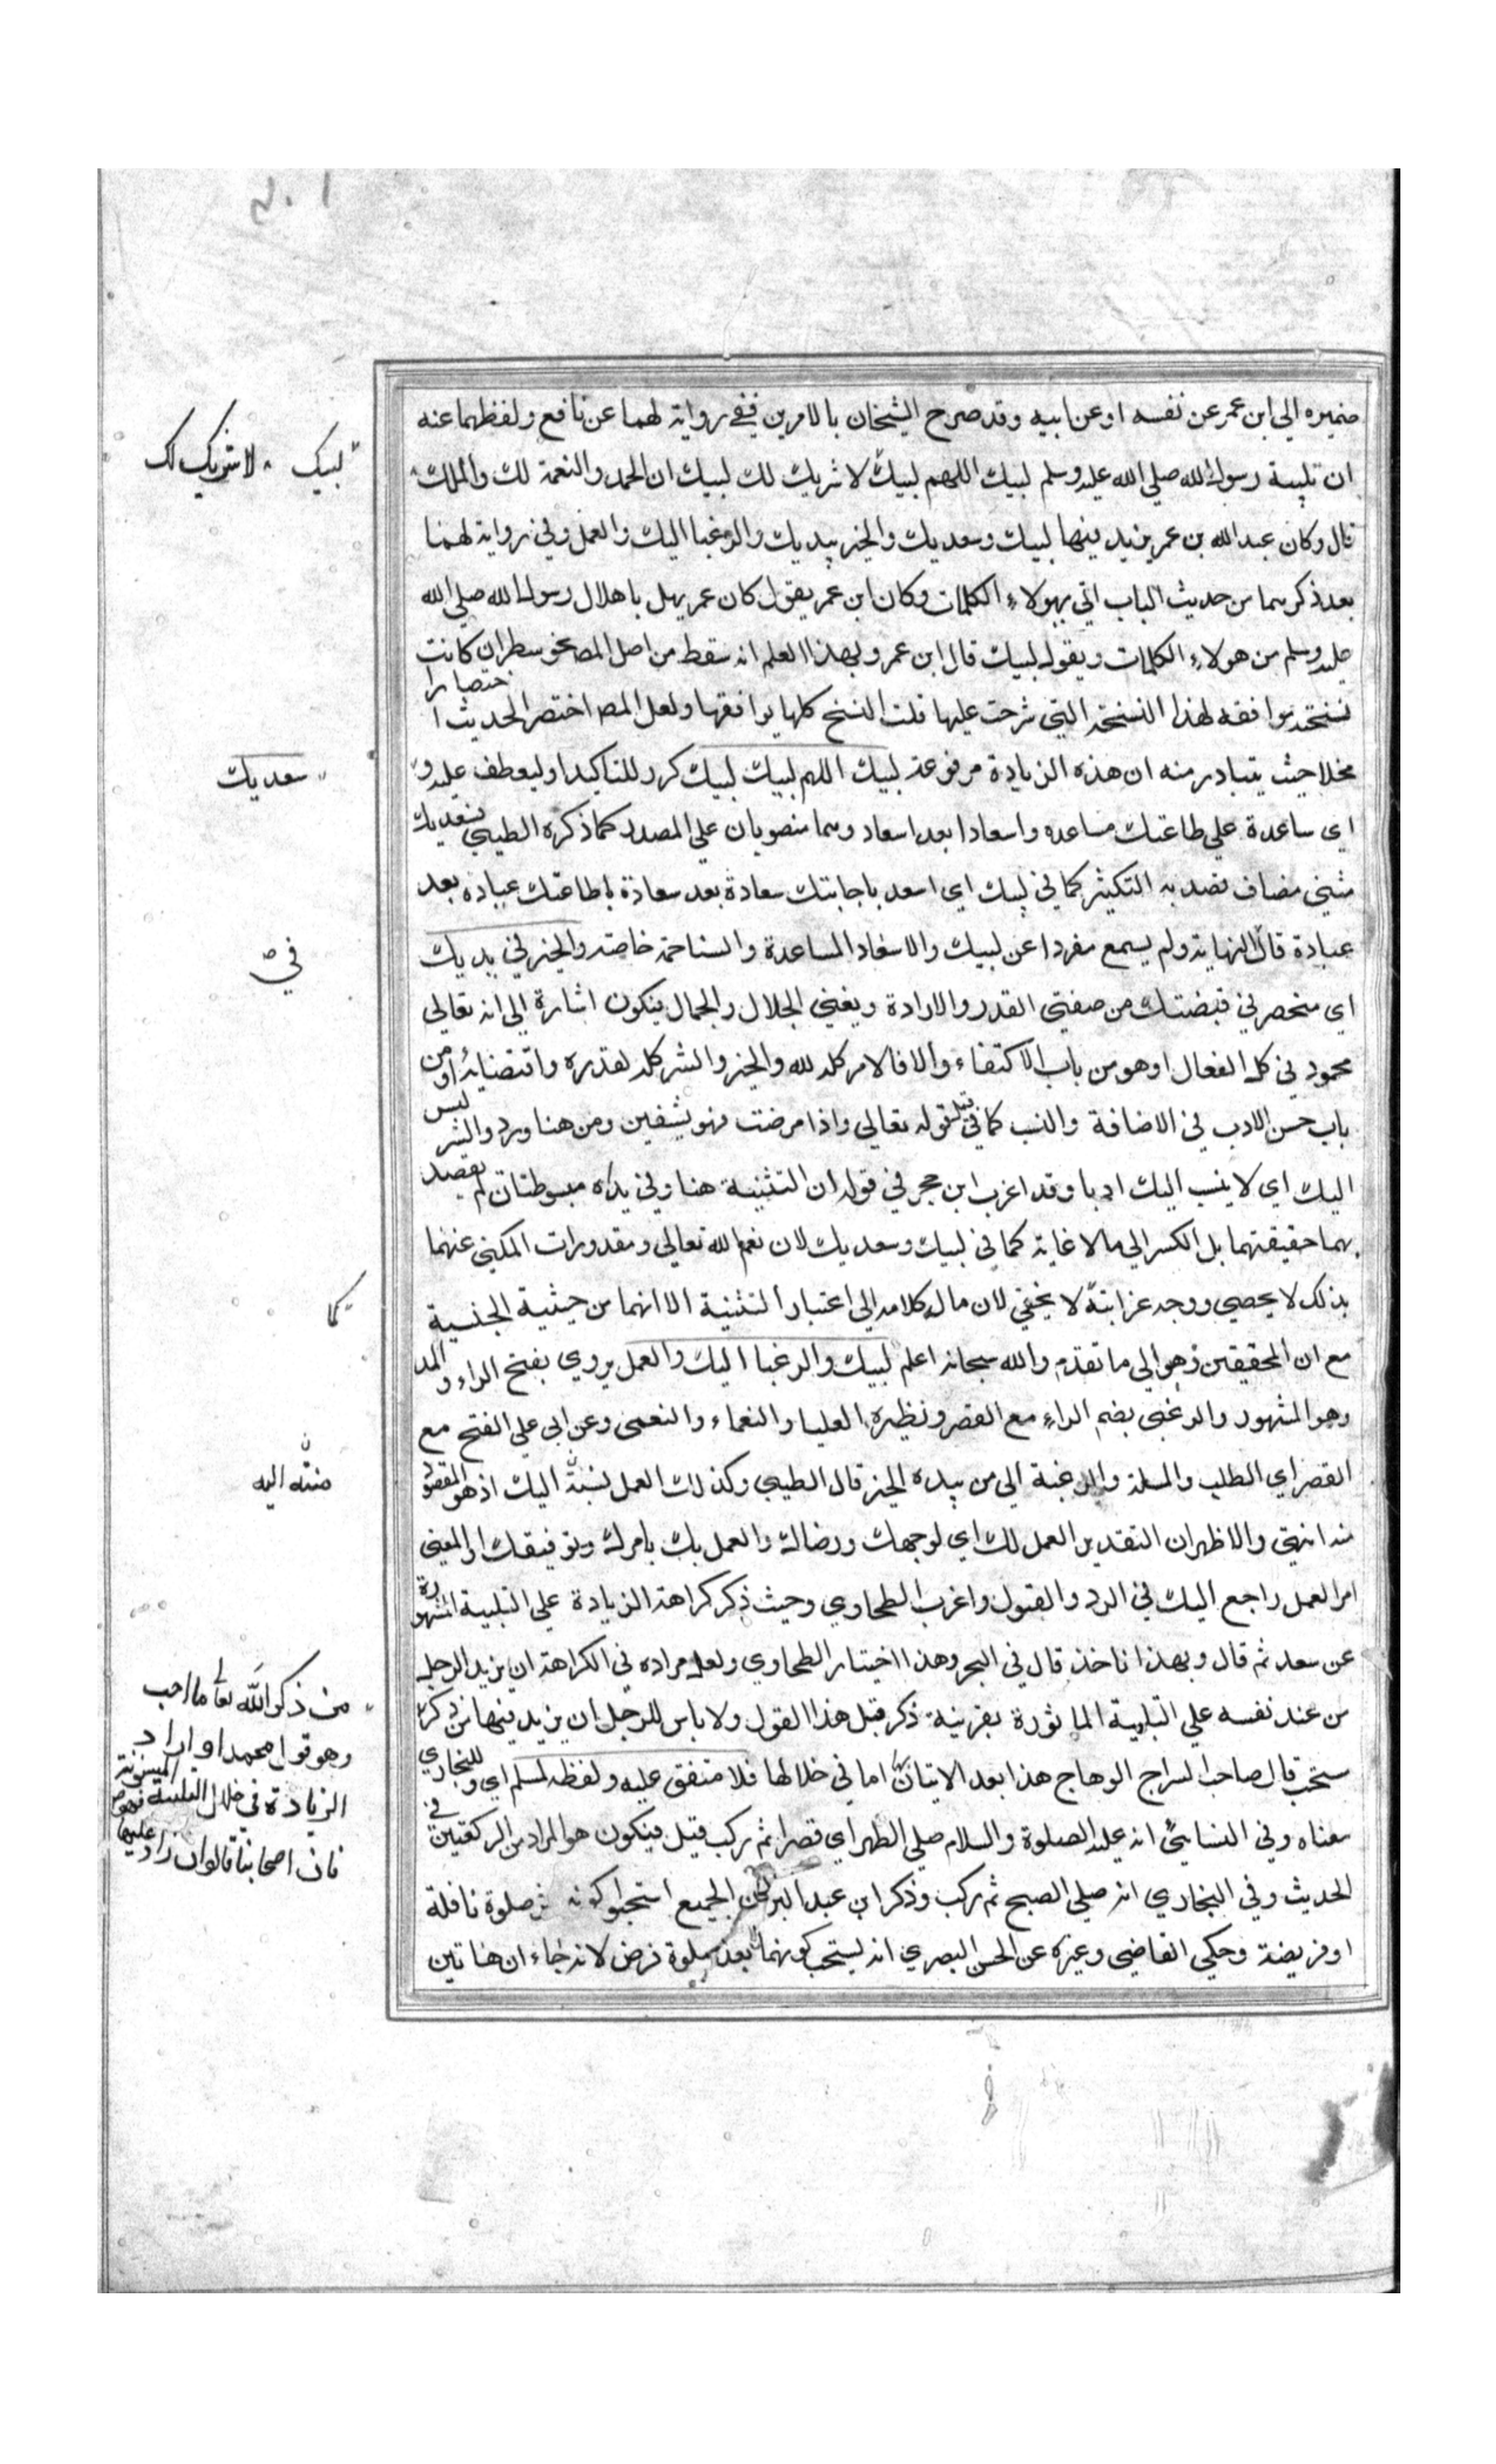 ضميره الي ابن عمر عن نفسه او عن ابيه وقد صرح الشيخان بالامرين ففي رواية لهما عن نافع ولفظهما عنه
ان تلبية رسول الله صلي الله عليه وسلم لبيك اللهم لبيك لا شريك لك لبيك ان الحمد والنعمة لك والملك
قال وكان عبد الله بن عمر يزيد فيها لبيك وسعديك والخير بيديك والرغبا اليك والعمل وفي رواية لهما
بعد ذكرهما من حديث الباب اتي بهولاء الكلمات وكان ابن عمر يقول كان عمر يهل باهلال رسول الله صلي الله
عليه وسلم من هولاء الكلمات ويقول لبيك قال ابن عمر وبهذا العلم انه سقط من اصل المص نحو سطر ان كانت
نسخته موافقه لهذا النسخة التي شرحت عليها قلت النسخ كلها توافقها ولعل المص اختصر الحديث اختصارا
مخلا حيث يتبادر منه ان هذه الزيادة مرفوعة لبيك اللهم لبيك لبيك كرر للتاكيد او ليعطف عليه و
اي ساعدة علي طاعتك مساعده واسعادا بعد اسعاد وهما منصوبان علي المصدر كما ذكره الطيبي فسعديك
مثني مضاف قصد به التكثير كما في لبيك اي اسعد باجابتك سعادة بعد سعادة باطاعتك عبادة بعد
عبادة قال النهاية ولم يسمع مفردا عن لبيك والاسعاد المساعدة والنياحة خاصة والخير في يديك
اي منحصر في قبضتك من صفتي القدر والارادة ويعني الجلال والجمال فيكون اشارة الي انه تعالي
محمود في كل الفعال او هو من باب الاكتفاء والا فالامر كله لله والخير والشر كله لقدره واقتضيائه او من
باب حسن الادب في الاضافة والنسب كما في قيل قوله تعالي واذا مرضت فهو يشفين ومن هنا ورد والشر ليس
اليك اي لا ينسب اليك ادبا وقد اغرب ابن حجر في قوله ان التثنية هنا وفي يداه مبسوطتان لم يقصد
بهما حقيقتهما بل الكسر الي مالا غاية كما في لبيك وسعديك لان نعم الله تعالي ومقدورات المكني عنهما
بذلك لا يحصي ووجه غرابته لا يخفي لان مال كلامه الي اعتبار التثنية الا انهما من حيثية الجنسية
مع ان المحققين ذهبوا الي ما تقدم والله سبحانه اعلم لبيك والرغبا اليك والعمل يروي بفتح الراء والمد
وهو المشهور والرغبي بضم الراء مع القصر ونظيره العليا والنعماء والنعمي وعن ابي علي الفتح مع
القصر اي الطلب والمسلة والرغبة الي من بيده الخير قال الطيبي وكذلك العمل نسبته اليك اذ هو المقصود
منه انتهي والاظهر ان التقدير العمل لك اي لوجهك ورضاك والعمل بك بامرك وتوفيقك او المعني
امر العمل راجع اليك في الرد والقبول واغرب الطحاوي وحيث ذكر كراهة الزيادة علي التلبية المشهورة
عن سعد ثم قال وبهذا ناخذ قال في البحر وهذا اختيار الطحاوي ولعل مراده في الكراهة ان يزيد الرجل
من عند نفسه علي التلبية الماثورة بقرينة ذكر قبل هذا القول ولا باس للرجل ان يزيد فيها من ذكر
مستحب قال صاحب السراج الوهاج هذا بعد الاتيان بها اما في خلالها فلا متفق عليه ولفظه لمسلم اي وللبخاري
معناه وفي النسايي انه عليه الصلوة والسلام صلي الظهر اي قصرا ثم ركب قيل فيكون هو المراد من الركعتين في
الحديث وفي البخاري انه صلي الصبح ثم ركب وذكر ابن عبد البر عن الجميع استحبوا كونه اثر صلوة نافلة
او فريضة وحكي القاضي وغيره عن الحسن البصري انه يستحب كونهما بعد صلوة فرض لانه جاء ان هاتين
لبيك لا شريك لك
سعديك
في
كما
منته اليه
من ذكر الله تعا ما احب
وهو قول محمد او اراد
الزيادة في خلال التلبية المسنونة
فان اصحابنا قالوا ان زاد عليها